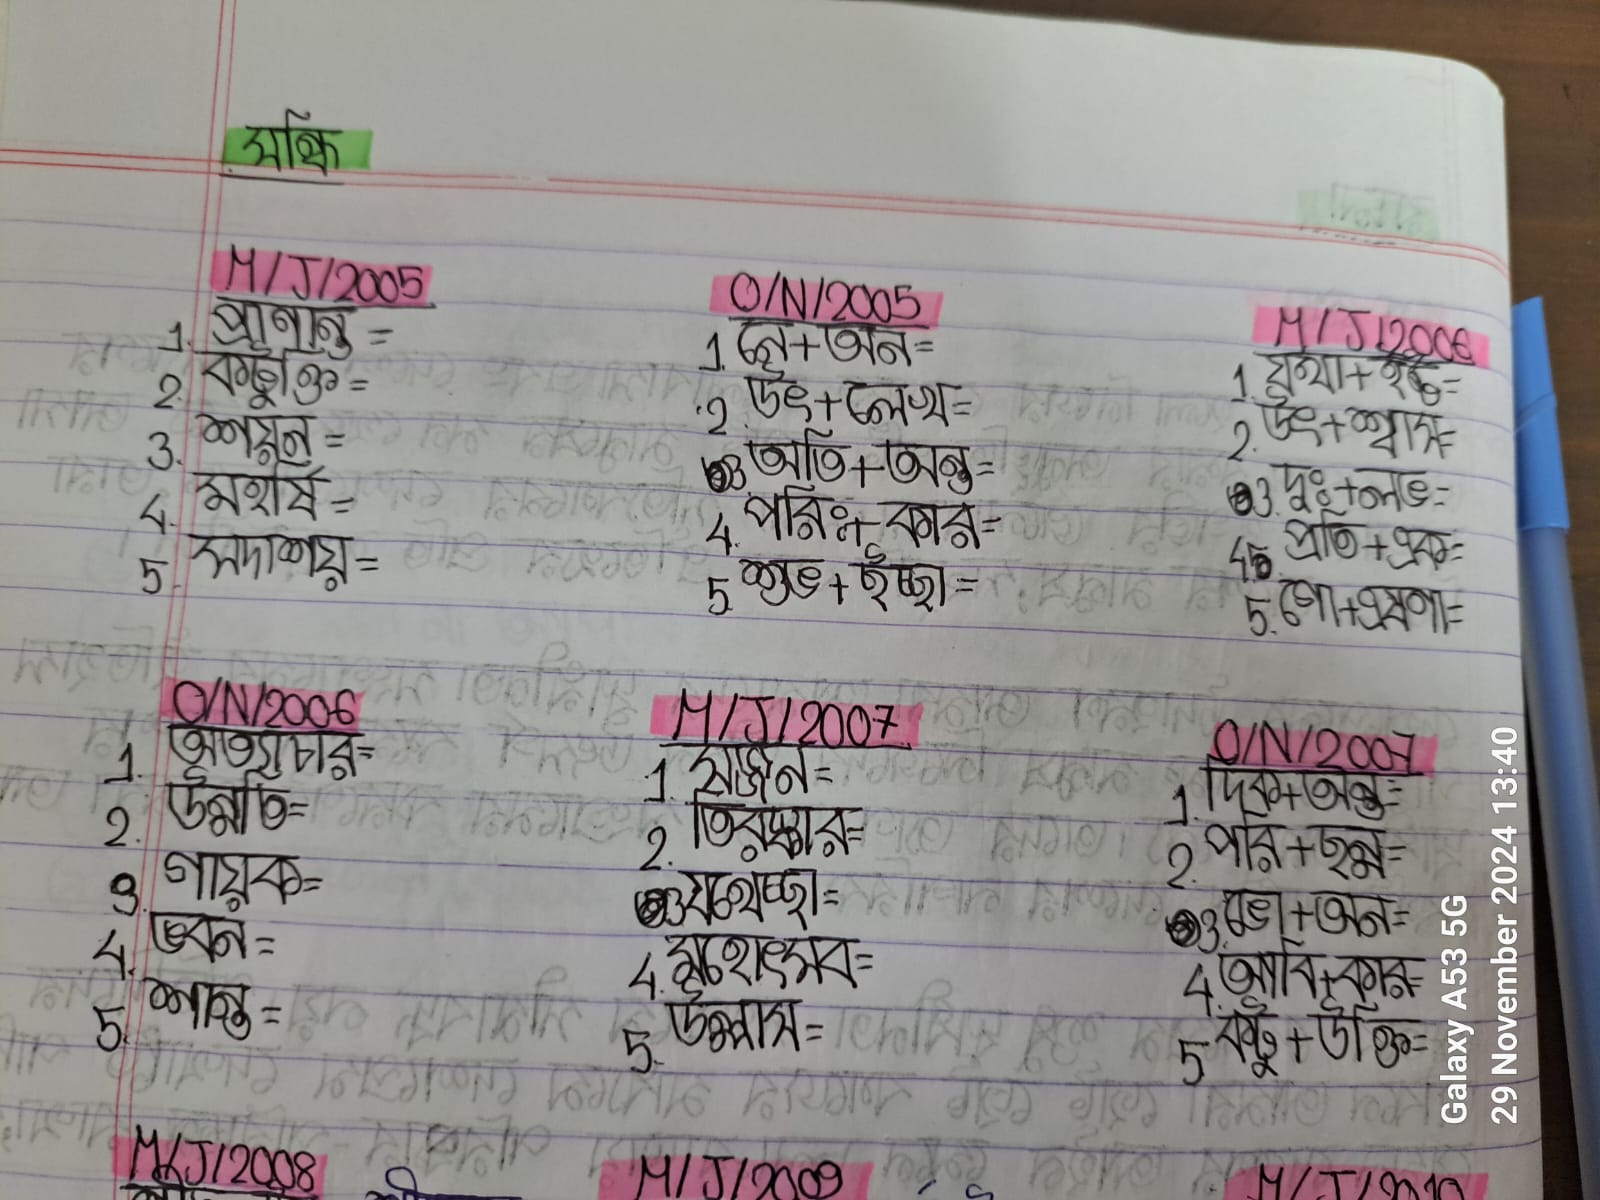 সন্ধি
M/J/2005
1. প্রাণান্ত =
2. কটুক্তি =
3. শয়ন =
4. মহর্ষি =
5. সদাশয় =
O/N/2005
1. নে+অন=
2. উৎ+লেখ=
3 অতি+অন্ত=
4. পরিঃ+কার=
5 শুভ+ইচ্ছা=
M/J/2006
1. যথা+ইষ্ট=
2. উৎ+শ্বাস=
3. দুঃ+লভ=
4. প্রতি+এক=
5. গো+এষণা=
O/N/2006
1. অত্যাচার=
2. উন্নতি=
3. গায়ক=
4. ভবন=
5. শান্ত=
M/J/2007
1. সজ্জন=
2. তিরস্কার=
3 যথেচ্ছা=
4. মহোৎসব=
5. উল্লাস=
O/N/2007
1. দিক+অন্ত=
2. পরি+ছন্ন=
3. ভো+অন=
4. আবি+কার=
5 কটু+উক্তি=
M/J/2008
M/J/2009
M/J/2010
Galaxy A53 5G
29 November 2024 13:40